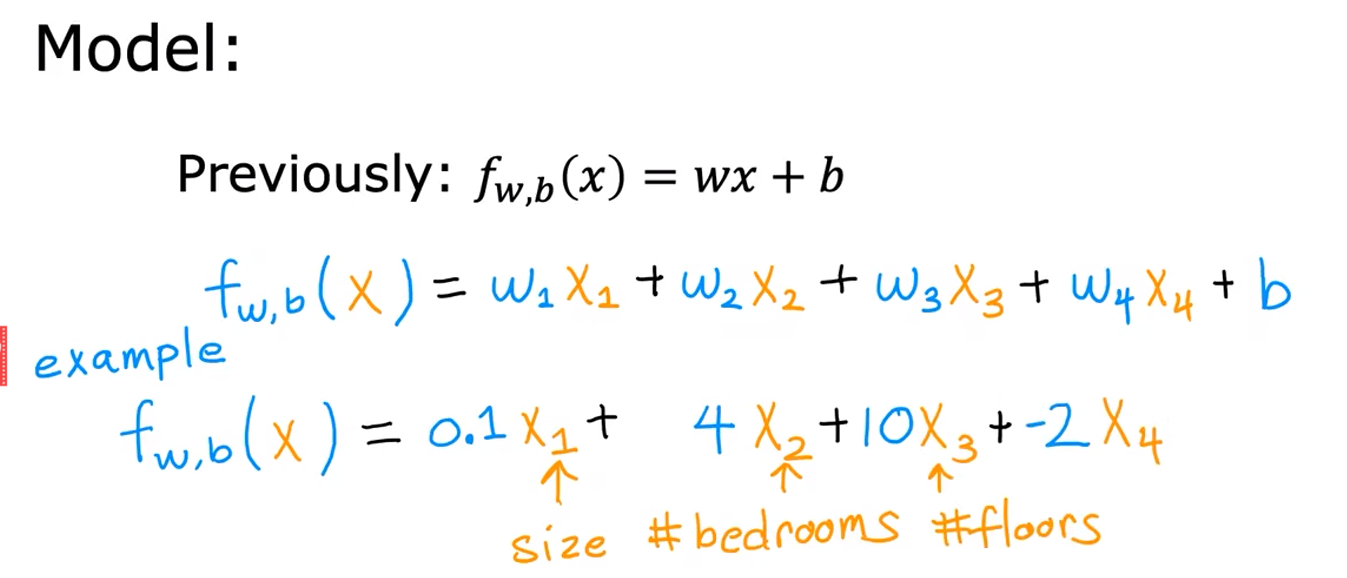 Model:
Previously: f_{w,b}(x) = wx + b
f_{w,b}(x) = w₁x₁ + w₂x₂ + w₃x₃ + w₄x₄ + b
example
f_{w,b}(x) = 0.1x₁ + 4x₂ + 10x₃ + -2x₄
↑ ↑ ↑
size #bedrooms #floors